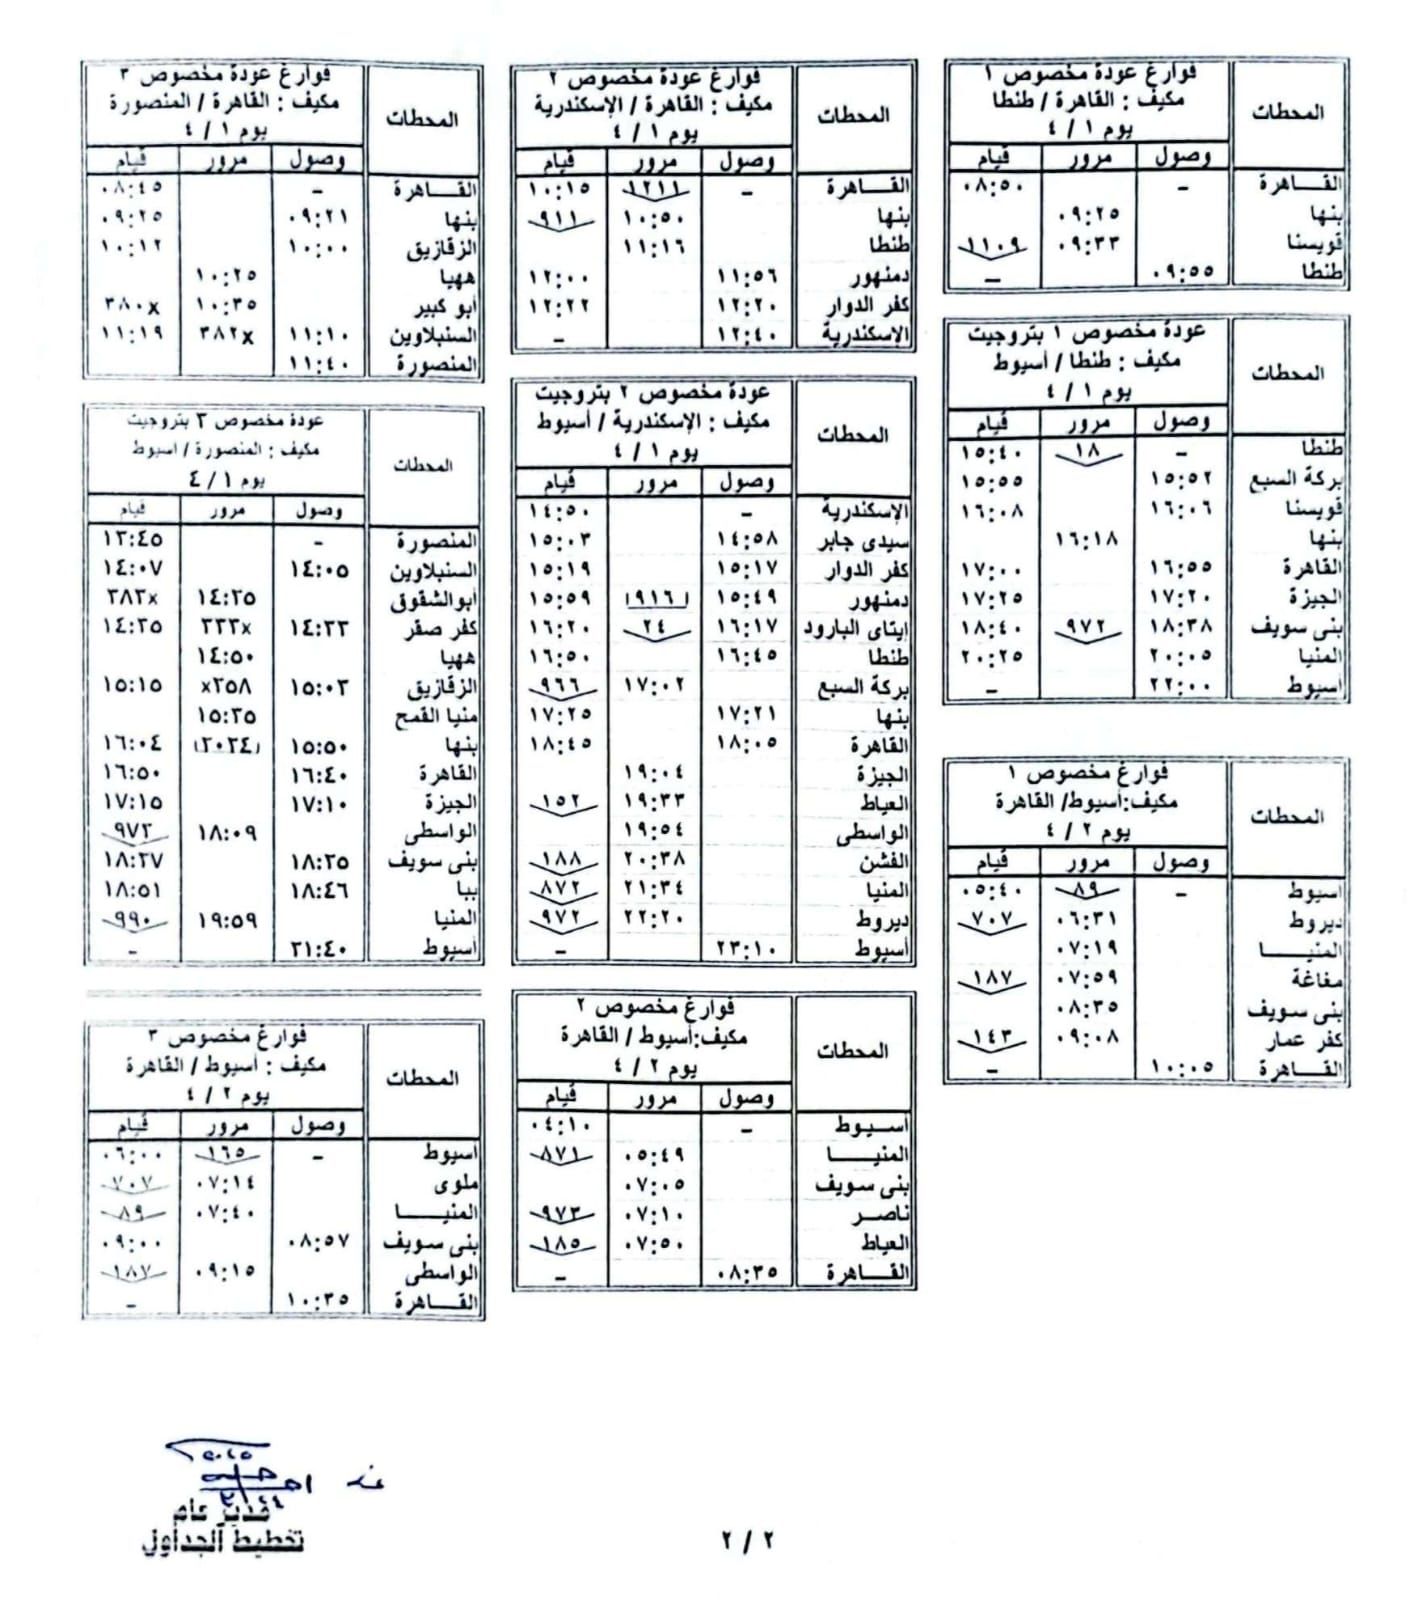 المحطات | فوارغ عودة مخصوص ١
مكيف : القاهرة / طنطا
يوم ١ / ٤
وصول | مرور | قيام
القـــاهرة | – | | ٠٨:٥٠
بنها | | ٠٩:٢٥ |
قويسنا | | ٠٩:٣٣ | ١١٠٩
طنطا | ٠٩:٥٥ | | –
المحطات | عودة مخصوص ١ بتروجيت
مكيف : طنطا / أسيوط
يوم ١ / ٤
وصول | مرور | قيام
طنطا | – | ١٨ | ١٥:٤٠
بركة السبع | ١٥:٥٢ | | ١٥:٥٥
قويسنا | ١٦:٠٦ | | ١٦:٠٨
بنها | | ١٦:١٨ |
القاهرة | ١٦:٥٥ | | ١٧:٠٠
الجيزة | ١٧:٢٠ | | ١٧:٢٥
بنى سويف | ١٨:٣٨ | ٩٧٢ | ١٨:٤٠
المنيا | ٢٠:٠٥ | | ٢٠:٢٥
أسيوط | ٢٢:٠٠ | | –
المحطات | فوارغ مخصوص ١
مكيف:أسيوط/ القاهرة
يوم ٢ / ٤
وصول | مرور | قيام
اسيوط | – | ٨٩ | ٠٥:٤٠
ديروط | | ٠٦:٣١ | ٧٠٧
المنيـــا | | ٠٧:١٩ |
مغاغة | | ٠٧:٥٩ | ١٨٧
بنى سويف | | ٠٨:٣٥ |
كفر عمار | | ٠٩:٠٨ | ١٤٣
القـــاهرة | ١٠:٠٥ | | –
المحطات | فوارغ عودة مخصوص ٢
مكيف : القاهرة / الإسكندرية
يوم ١ / ٤
وصول | مرور | قيام
القـــاهرة | – | ١٢١١ | ١٠:١٥
بنها | | ١٠:٥٠ | ٩١١
طنطا | | ١١:١٦ |
دمنهور | ١١:٥٦ | | ١٢:٠٠
كفر الدوار | ١٢:٢٠ | | ١٢:٢٢
الاسكندرية | ١٢:٤٠ | | –
المحطات | عودة مخصوص ٢ بتروجيت
مكيف : الإسكندرية / أسيوط
يوم ١ / ٤
وصول | مرور | قيام
الإسكندرية | – | | ١٤:٥٠
سيدى جابر | ١٤:٥٨ | | ١٥:٠٣
كفر الدوار | ١٥:١٧ | | ١٥:١٩
دمنهور | ١٥:٤٩ | ٩١٦ | ١٥:٥٩
إيتاى البارود | ١٦:١٧ | ٢٤ | ١٦:٢٠
طنطا | ١٦:٤٥ | | ١٦:٥٠
بركة السبع | | ١٧:٠٢ | ٩٦٦
بنها | ١٧:٢١ | | ١٧:٢٥
القاهرة | ١٨:٠٥ | | ١٨:٤٥
الجيزة | | ١٩:٠٤ |
العياط | | ١٩:٣٣ | ١٥٢
الواسطى | | ١٩:٥٤ |
الفشن | | ٢٠:٣٨ | ١٨٨
المنيا | | ٢١:٣٤ | ٨٧٢
ديروط | | ٢٢:٢٠ | ٩٧٢
أسيوط | ٢٣:١٠ | | –
المحطات | فوارغ مخصوص ٢
مكيف:أسيوط / القاهرة
يوم ٢ / ٤
وصول | مرور | قيام
اســيوط | – | | ٠٤:١٠
المنيـــا | | ٠٥:٤٩ | ٨٧١
بنى سويف | | ٠٧:٠٥ |
ناصــر | | ٠٧:١٠ | ٩٧٣
العياط | | ٠٧:٥٠ | ١٨٥
القـــاهرة | ٠٨:٣٥ | | –
المحطات | فوارغ عودة مخصوص ٣
مكيف : القاهرة / المنصورة
يوم ١ / ٤
وصول | مرور | قيام
القـــاهرة | – | | ٠٨:٤٥
بنها | ٠٩:٢١ | | ٠٩:٢٥
الزقازيق | ١٠:٠٠ | | ١٠:١٢
ههيا | | ١٠:٢٥ |
أبو كبير | | ١٠:٣٥ | ٣٨٠x
السنبلاوين | ١١:١٠ | ٣٨٢x | ١١:١٩
المنصورة | ١١:٤٠ | |
المحطات | عودة مخصوص ٣ بتروجيت
مكيف : المنصورة / اسيوط
يوم ١ / ٤
وصول | مرور | قيام
المنصورة | – | | ١٣:٤٥
السنبلاوين | ١٤:٠٥ | | ١٤:٠٧
أبو الشقوق | | ١٤:٢٥ | ٣٨٣x
كفر صقر | ١٤:٣٣ | ٣٣٣x | ١٤:٣٥
ههيا | | ١٤:٥٠ |
الزقازيق | ١٥:٠٣ | x٣٥٨ | ١٥:١٥
منيا القمح | | ١٥:٣٥ |
بنها | ١٥:٥٠ | ٢٠٣٤ | ١٦:٠٤
القاهرة | ١٦:٤٠ | | ١٦:٥٠
الجيزة | ١٧:١٠ | | ١٧:١٥
الواسطى | | ١٨:٠٩ | ٩٧٣
بنى سويف | ١٨:٢٥ | | ١٨:٢٧
ببا | ١٨:٤٦ | | ١٨:٥١
المنيا | | ١٩:٥٩ | ٩٩٠
أسيوط | ٢١:٤٠ | | –
المحطات | فوارغ مخصوص ٣
مكيف : أسيوط / القاهرة
يوم ٢ / ٤
وصول | مرور | قيام
اسيوط | – | ١٦٥ | ٠٦:٠٠
ملوى | | ٠٧:١٤ | ٧٠٧
المنيـــا | | ٠٧:٤٠ | ٨٩
بنى سويف | ٠٨:٥٧ | | ٠٩:٠٠
الواسطى | | ٠٩:١٥ | ١٨٧
القـــاهرة | ١٠:٣٥ | | –
مدير عام
تخطيط الجداول
٢ / ٢